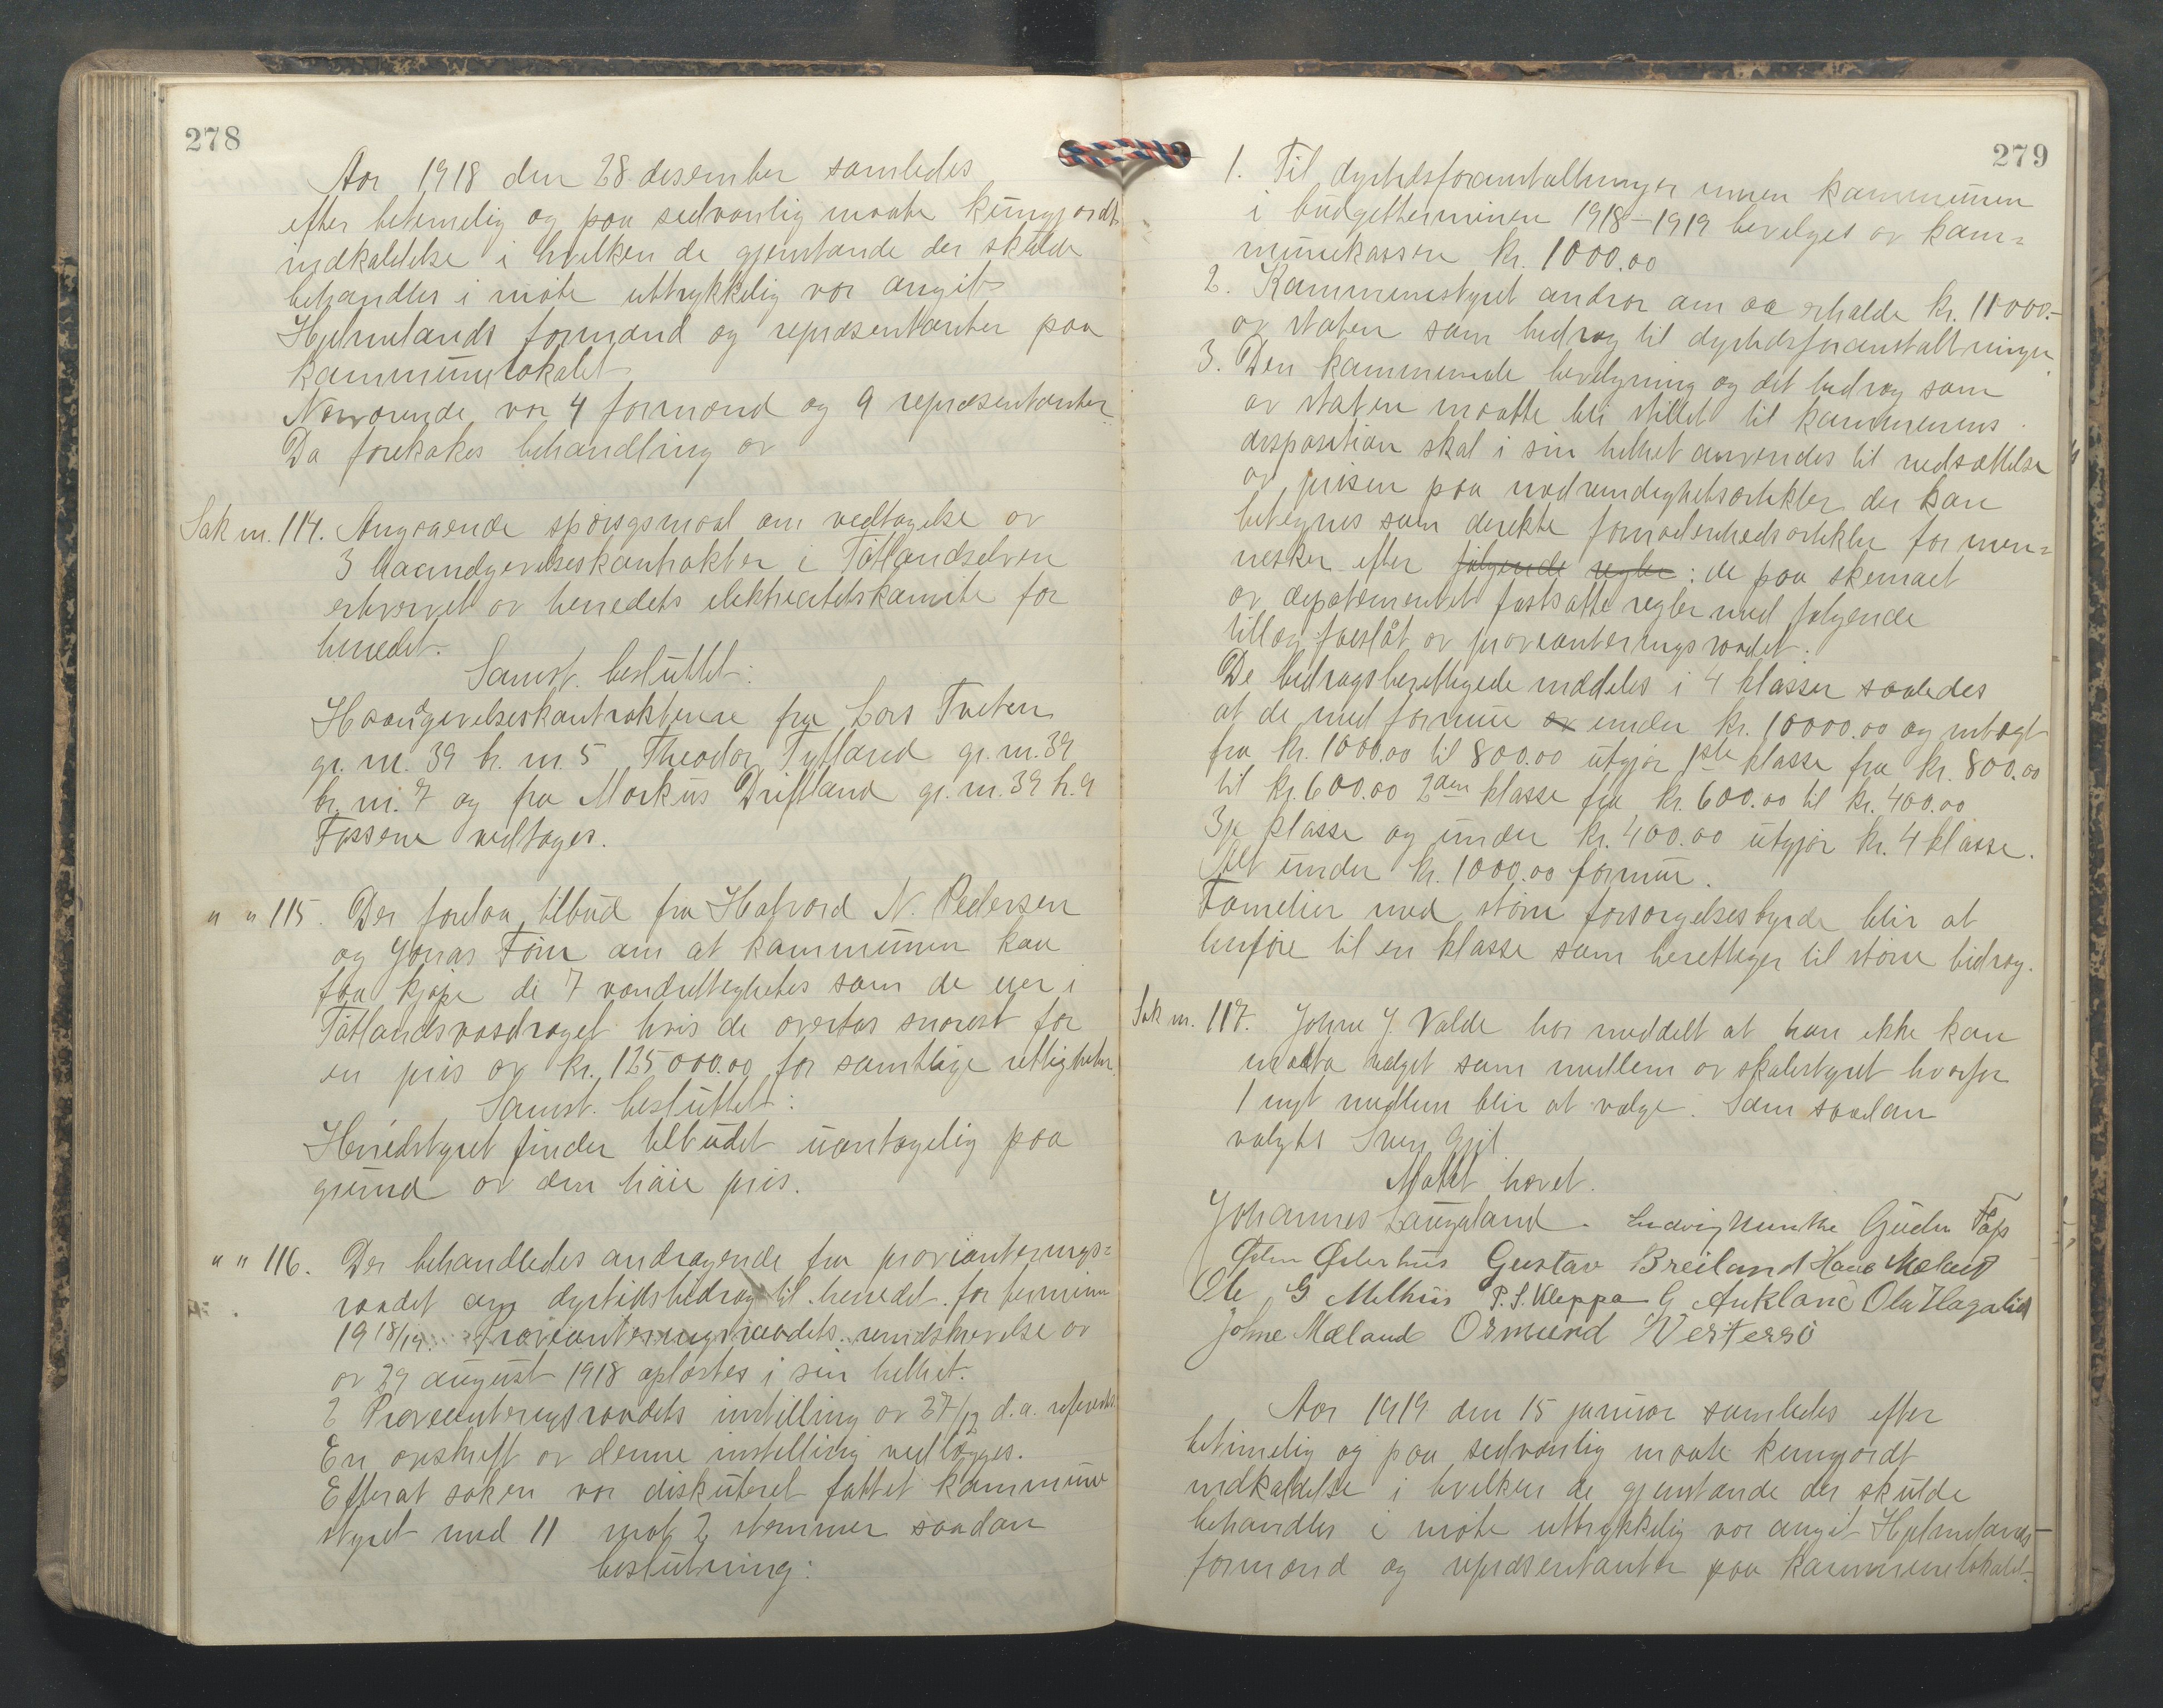 278
Aar 1918 den 28 desember samledes
efter betimelig og paa sedvanlig maate kungjordt
indkaldelse i hvilken de gjenstande der skulde
behandles i møte uttrykkelig var angit
Hjelmelands formænd og repræsentanter paa
kommunelokalet
Nærværende var 4 formænd og 9 repræsentanter
Da foretokes behandling av
Sak nr. 114. Angaaende spørsgsmaal om vedtagelse av
3 haandgivelseskontrakter i Tøtlandselven
erhvervet av herredets elektricitetskomite for
herredet.
Samst. besluttet:
Haandgivelseskontrakterne fra Lars Tveten
gr. nr. 39 br. nr. 5 Theodor Tytland gr. nr. 39
br. nr. 7 og fra Markus Driftland gr. nr. 39 b. 9
Fossene vedtages.
" " 115. Der forelaa tilbud fra Hafvard N. Pedersen
og Jonas Tøn om at kommunen kan
faa kjøpe de 7 vandrettigheter som de eier i
Tøtlandsvasdraget hvis de overtas snarest for
en pris av kr. 125000.00 for samtlige rettigheter.
Samst. besluttet:
Herredstyret finder tilbudet uantagelig paa
grund av den høie pris.
" " 116. Der behandledes andragende fra provianterings=
raadet om dyrtidsbidrag til herredet for termin
1918/19. Provianteringsraadets rundskrivelse av
av 29 august 1918 oplæstes i sin helhet.
2 Provianteringsraadets instilling av 27/12 d.a. refertes.
En avskrift av denne instilling vedlægges.
Efterat saken var diskuteret fattet kommune
styret med 11 mot 2 stemmer saadan
beslutning:
279
1. Til dyrtidsforanstaltninger innen kommunen
i budgetterminen 1918-1919 bevilges av kom=
munekassen kr. 1000.00
2. Kommunestyret andrar om aa erholde kr. 11000.-
av staten som bidrag til dyrtidsforanstaltninger.
3. Den kommunale bevilgning og det bidrag som
av staten maatte bli stillet til kommunens
disposition skal i sin helhet anvendes til nedsættelse
av prisen paa nødvendighetsartikler der kan
betegnes som direkte fornødenhedsartikler for men=
nesker efter følgende regler: de paa skemaet
av depatementet fastsatte regler med følgende
tillæg foeslåt av provianteringsraadet:
De bidragsberettigede inddeles i 4 klasser saaledes
at de med formue av under kr. 10000.00 og indtægt
fra kr. 1000.00 til 800.00 utgjør 1ste klasse fra kr. 800.00
til kr. 600.00 2den klasse fra kr. 600.00 til kr. 400.00
3je klasse og under kr. 400.00 utgjør kr. 4 klasse.
Alt under kr. 1000.00 formue.
Familier med større forsørgelsesbyrde blir at
henføre til en klasse som berettiger til større bidrag.
Sak nr. 117. Johne J. Valde har meddelt at han ikke kan
motta valget som medlem av skolestyret hvorfor
1 nyt medlem blir at vælge. Som saadan
valgtes Sven Gjil
Møtet hævet.
Johannes Laugaland. Ludvig Munthe Gudm Fops
Østen Østerhus Gustav Breiland Hans Mæland
Ole G Melhus P. S. Kleppa G Aukland Ola Hagalid
Johne Mæland Osmund Westersø
Aar 1919 den 15 januar samledes efter
betimelig og paa sedvanlig maate kungjordt
indkaldelse i hvilken de gjenstande der skulde
behandles i møte uttrykkelig var angit Hjelmelands
formænd og repræsentanter paa kommunelokalet.